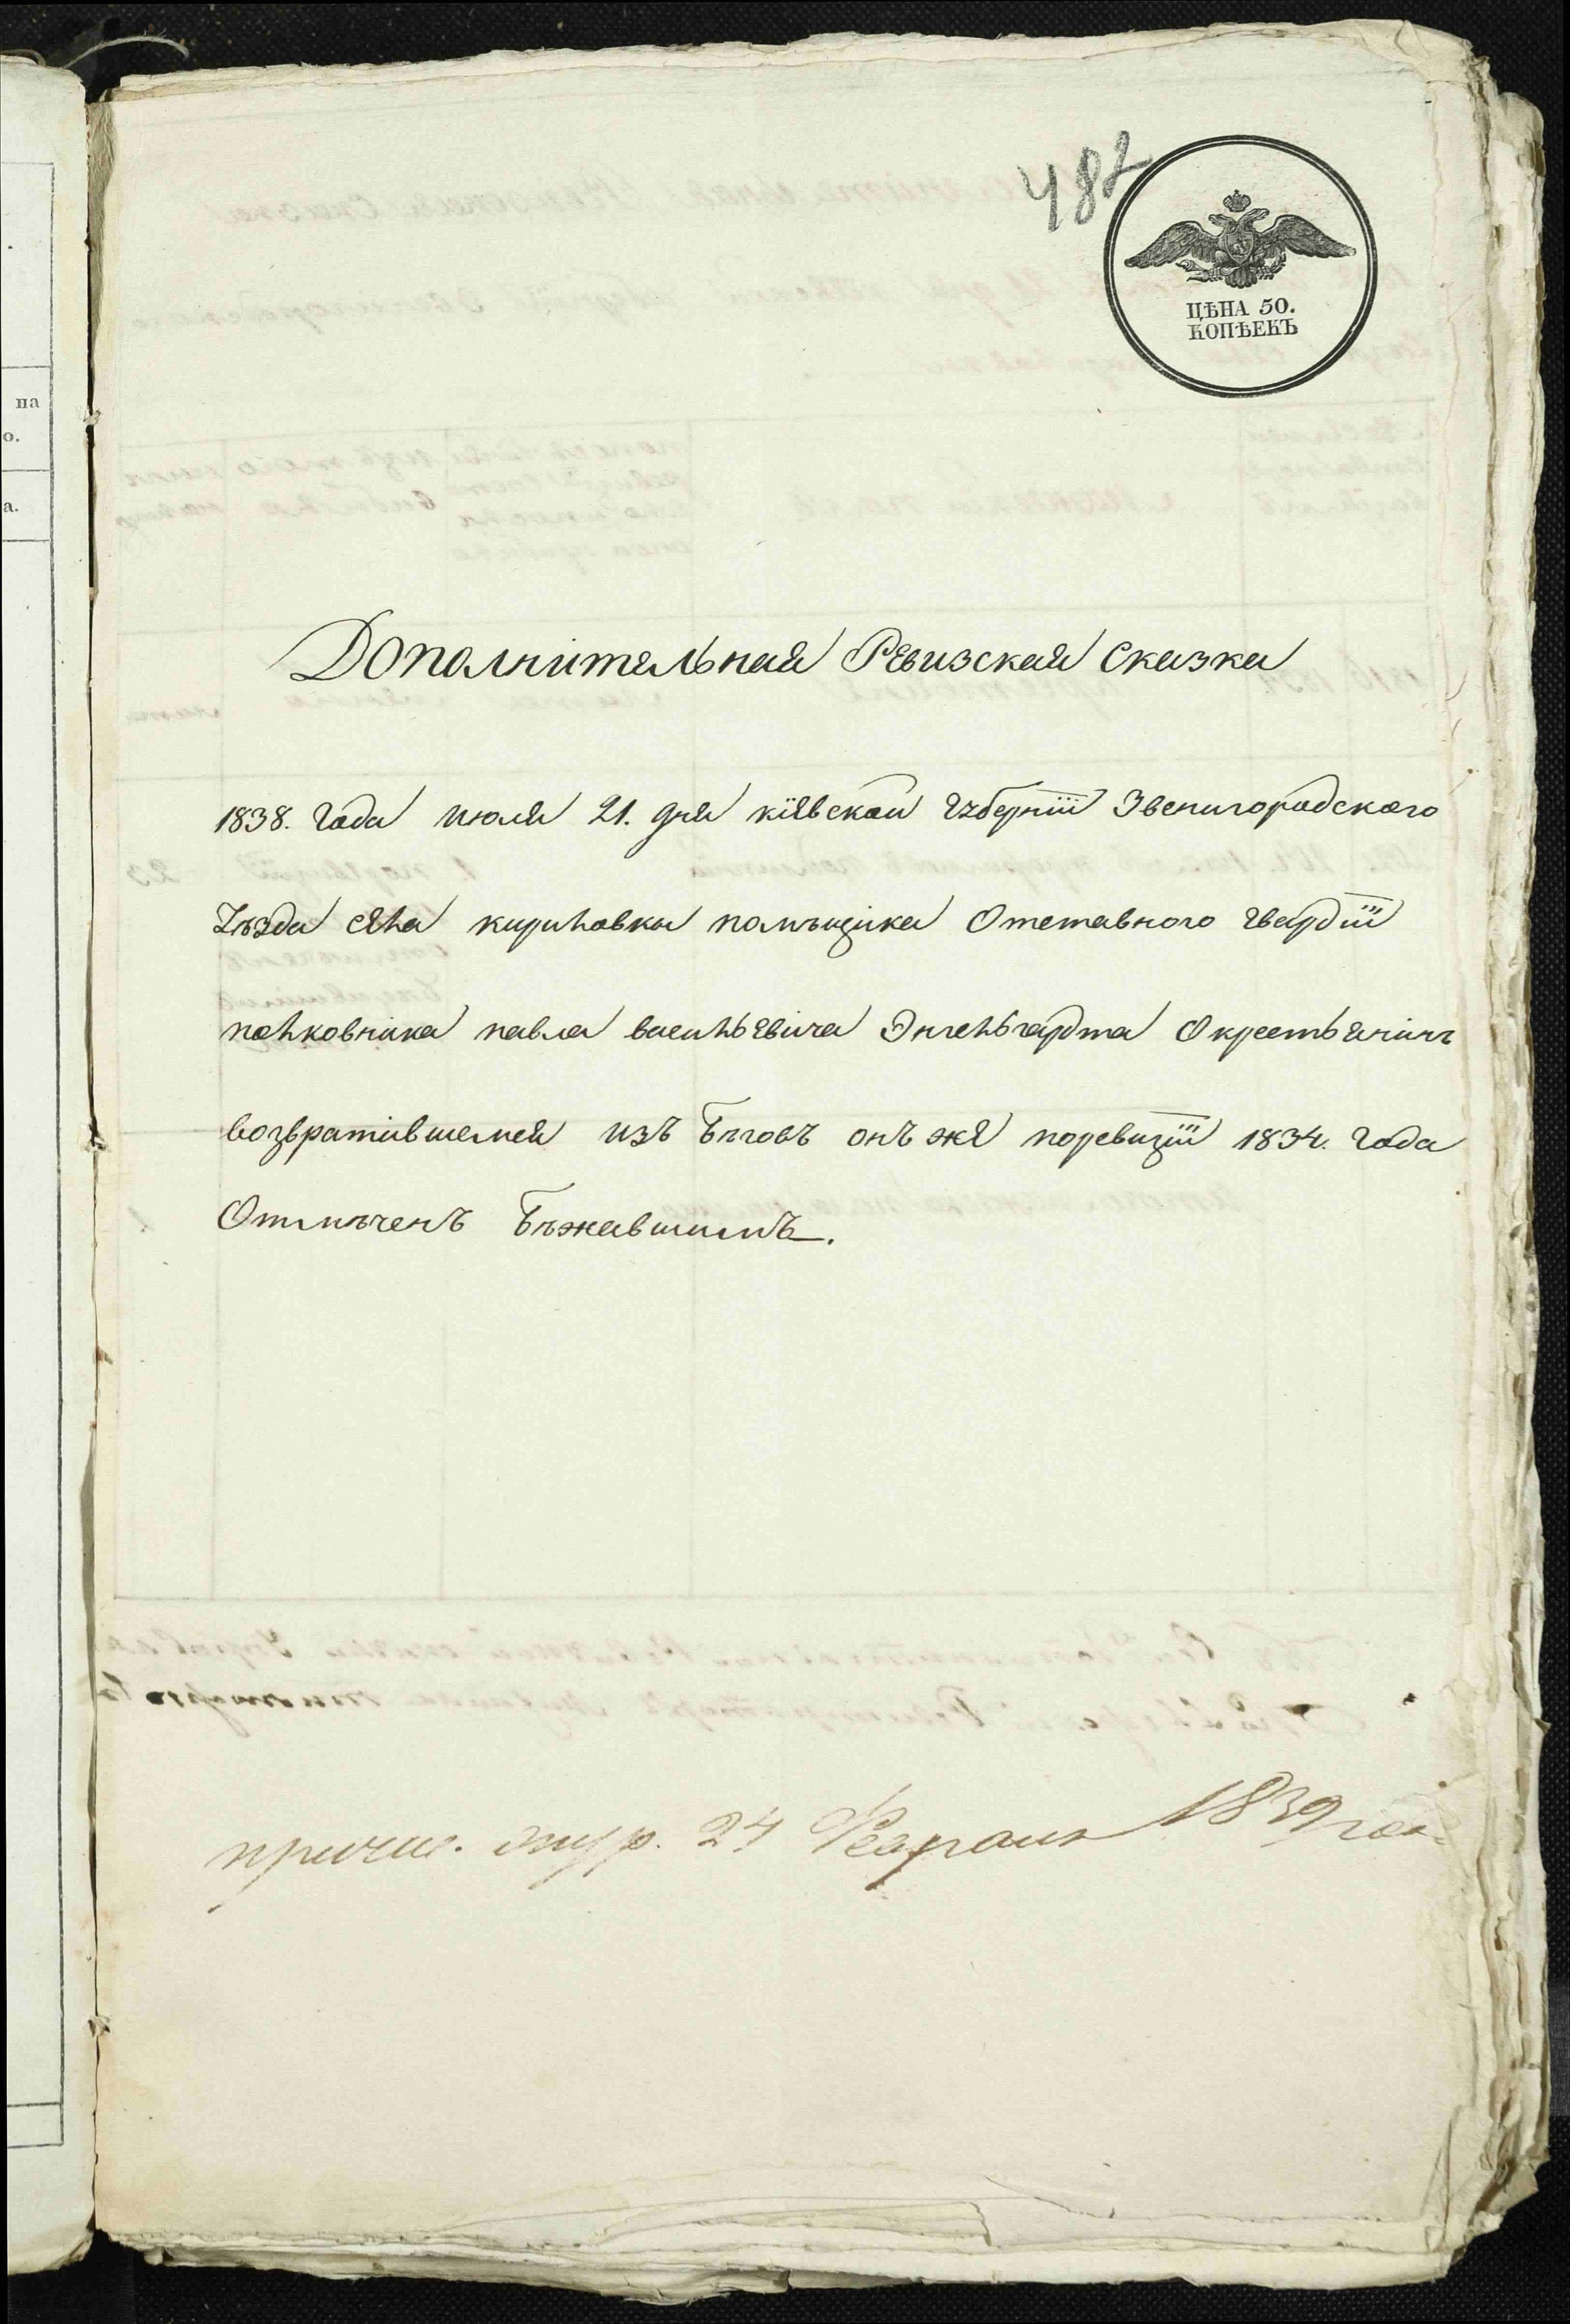 482
ЦѢНА 50.
КОПѢЕКЪ
Дополнительная Ревизская Сказка
1838. Года июля 21. дня кіевской губерніи Звенигородского
уѣзда села кириловки помѣщика Отставного гвардіи
полковника павла васильевича Энгельгардта О крестьянинѣ
возвратившемся изъ бѣговъ онъ же поревизіи 1834. года
Отмѣченъ бѣжавшимъ.
24 Февраля 1839 года
на
о.
а.